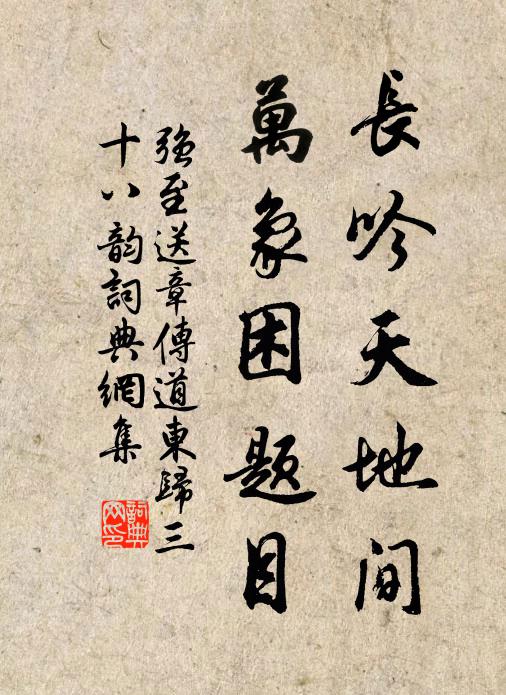 長吟天地间
萬象困题目
強至送章傳道東歸三
十八韵詞典網集
詞典
网印